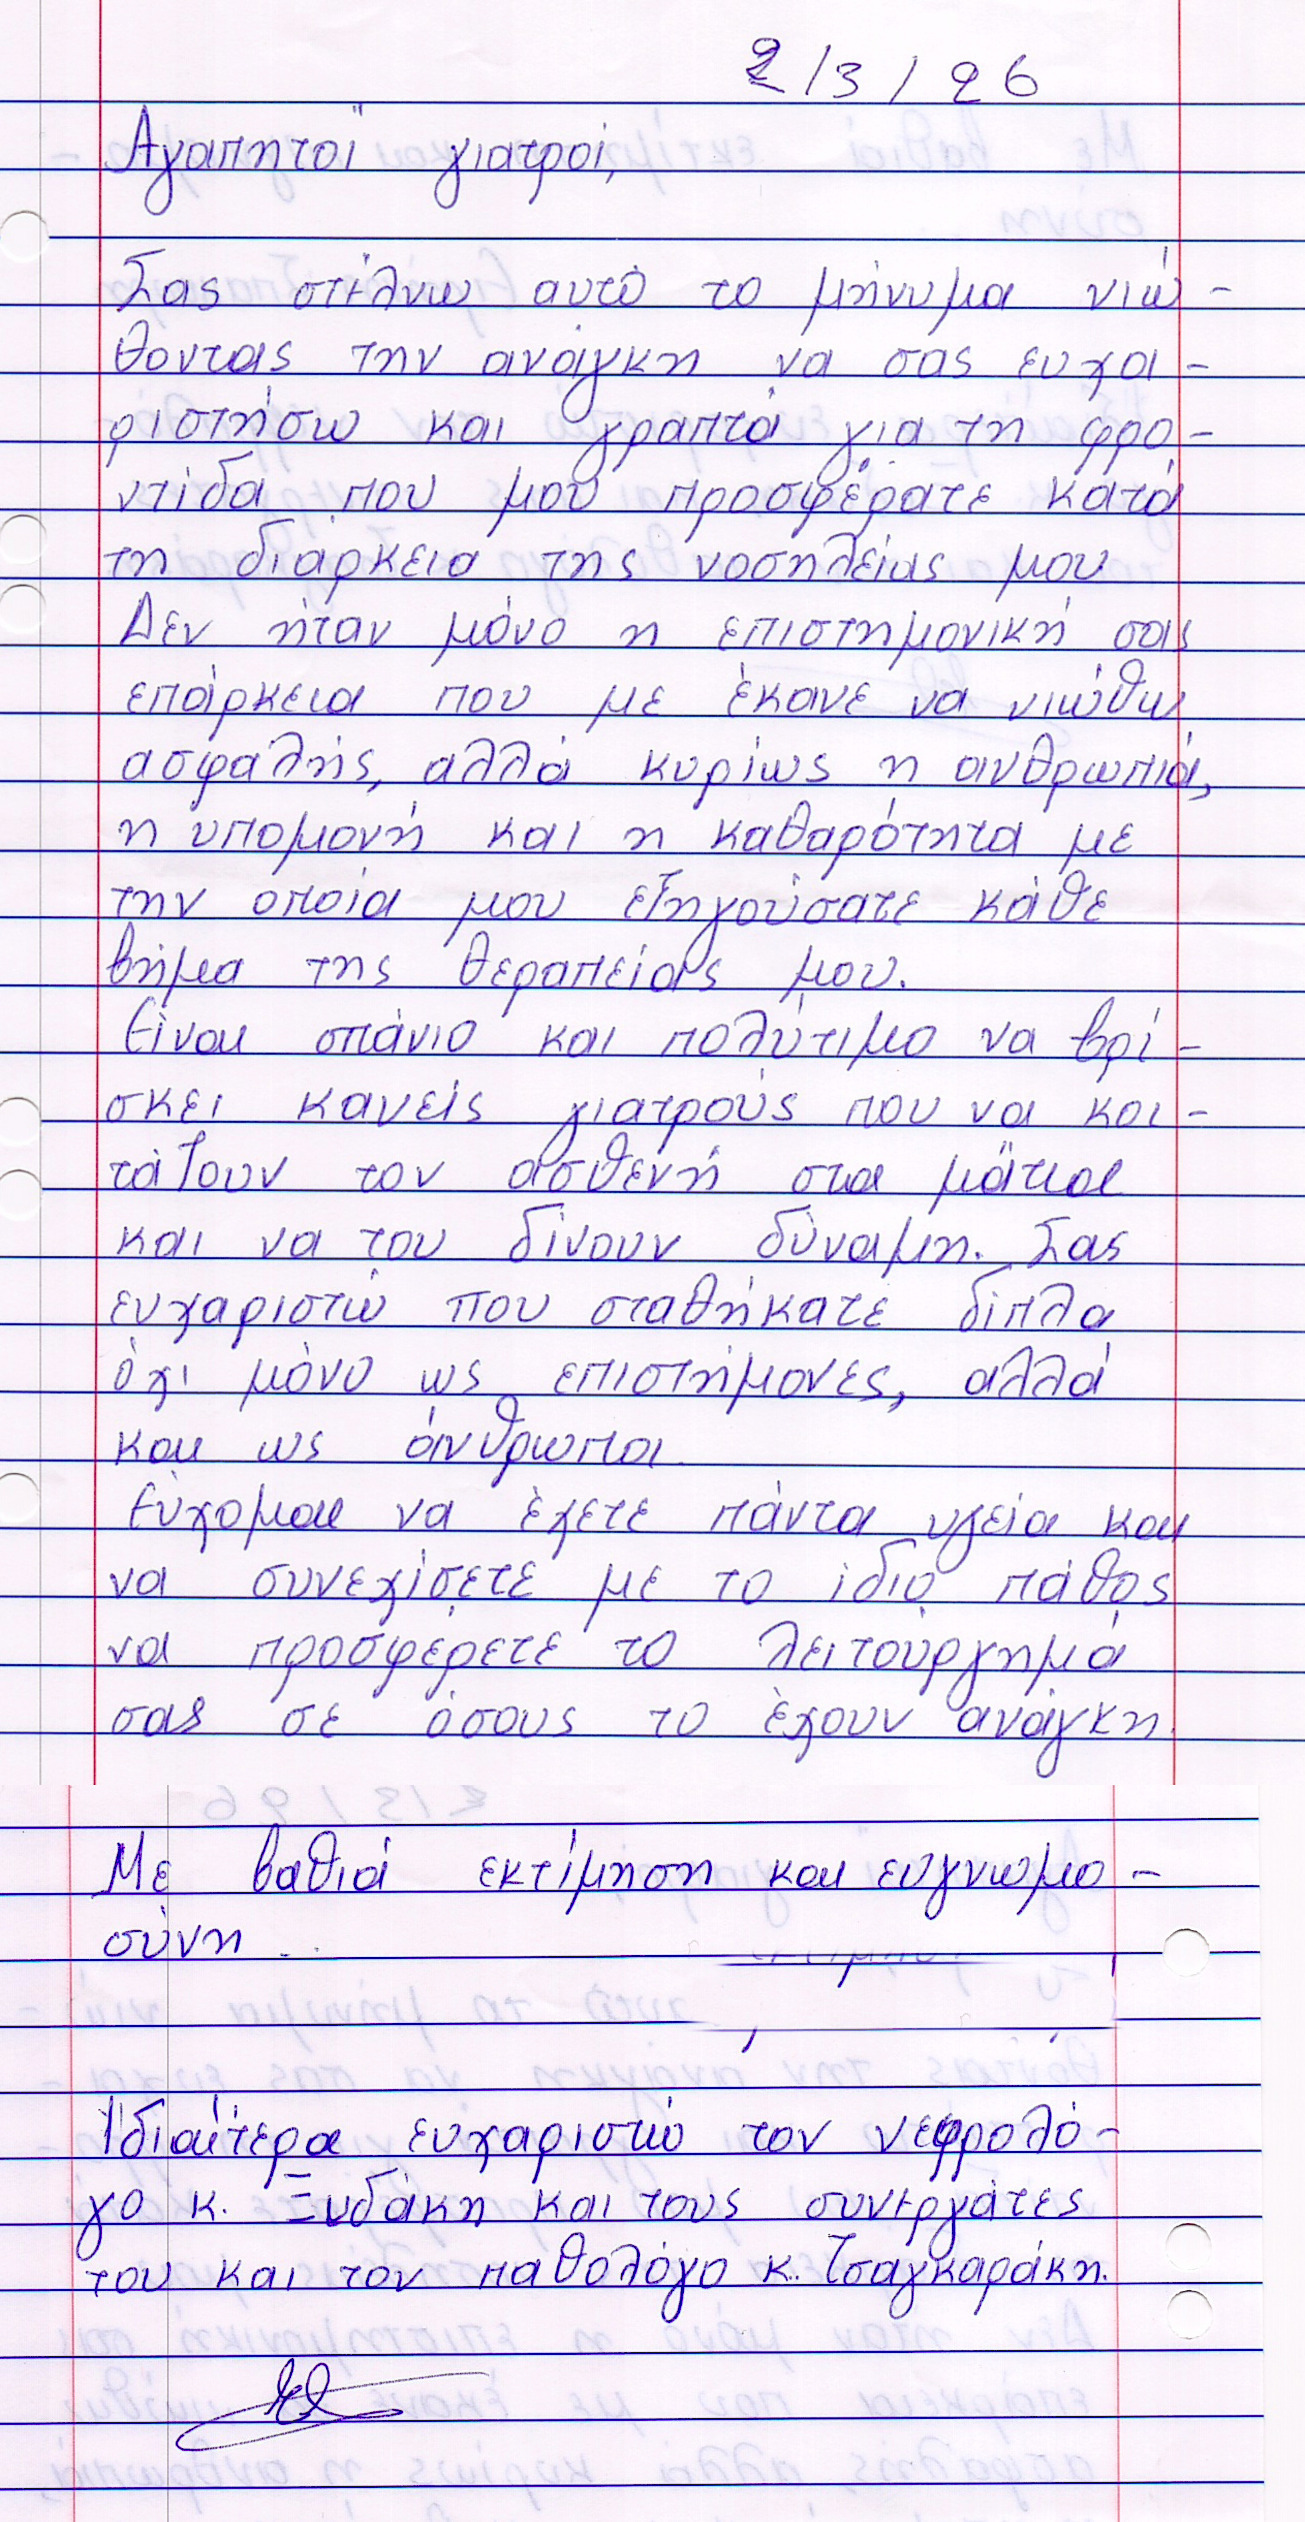 2/3/26
Αγαπητοί γιατροί,
Σας στέλνω αυτό το μήνυμα νιώ-
θοντας την ανάγκη να σας ευχα-
ριστήσω και γραπτά για τη φρο-
ντίδα που μου προσφέρατε κατά
τη διάρκεια της νοσηλείας μου
Δεν ήταν μόνο η επιστημονική σας
επάρκεια που με έκανε να νιώθω
ασφαλής, αλλά κυρίως η ανθρωπιά,
η υπομονή και η καθαρότητα με
την οποία μου εξηγούσατε κάθε
βήμα της θεραπείας μου.
Είναι σπάνιο και πολύτιμο να βρί-
σκει κανείς γιατρούς που να κοι-
τάζουν τον ασθενή στα μάτια
και να του δίνουν δύναμη. Σας
ευχαριστώ που σταθήκατε δίπλα
όχι μόνο ως επιστήμονες, αλλά
και ως άνθρωποι
Εύχομαι να έχετε πάντα υγεία και
να συνεχίσετε με το ίδιο πάθος
να προσφέρετε το λειτούργημά
σας σε όσους το έχουν ανάγκη.
Με βαθιά εκτίμηση και ευγνωμο-
σύνη
Ιδιαίτερα ευχαριστώ τον νεφρολό-
γο κ. Ξυδάκη και τους συνεργάτες
του και τον παθολόγο κ. Τσαγκαράκη.